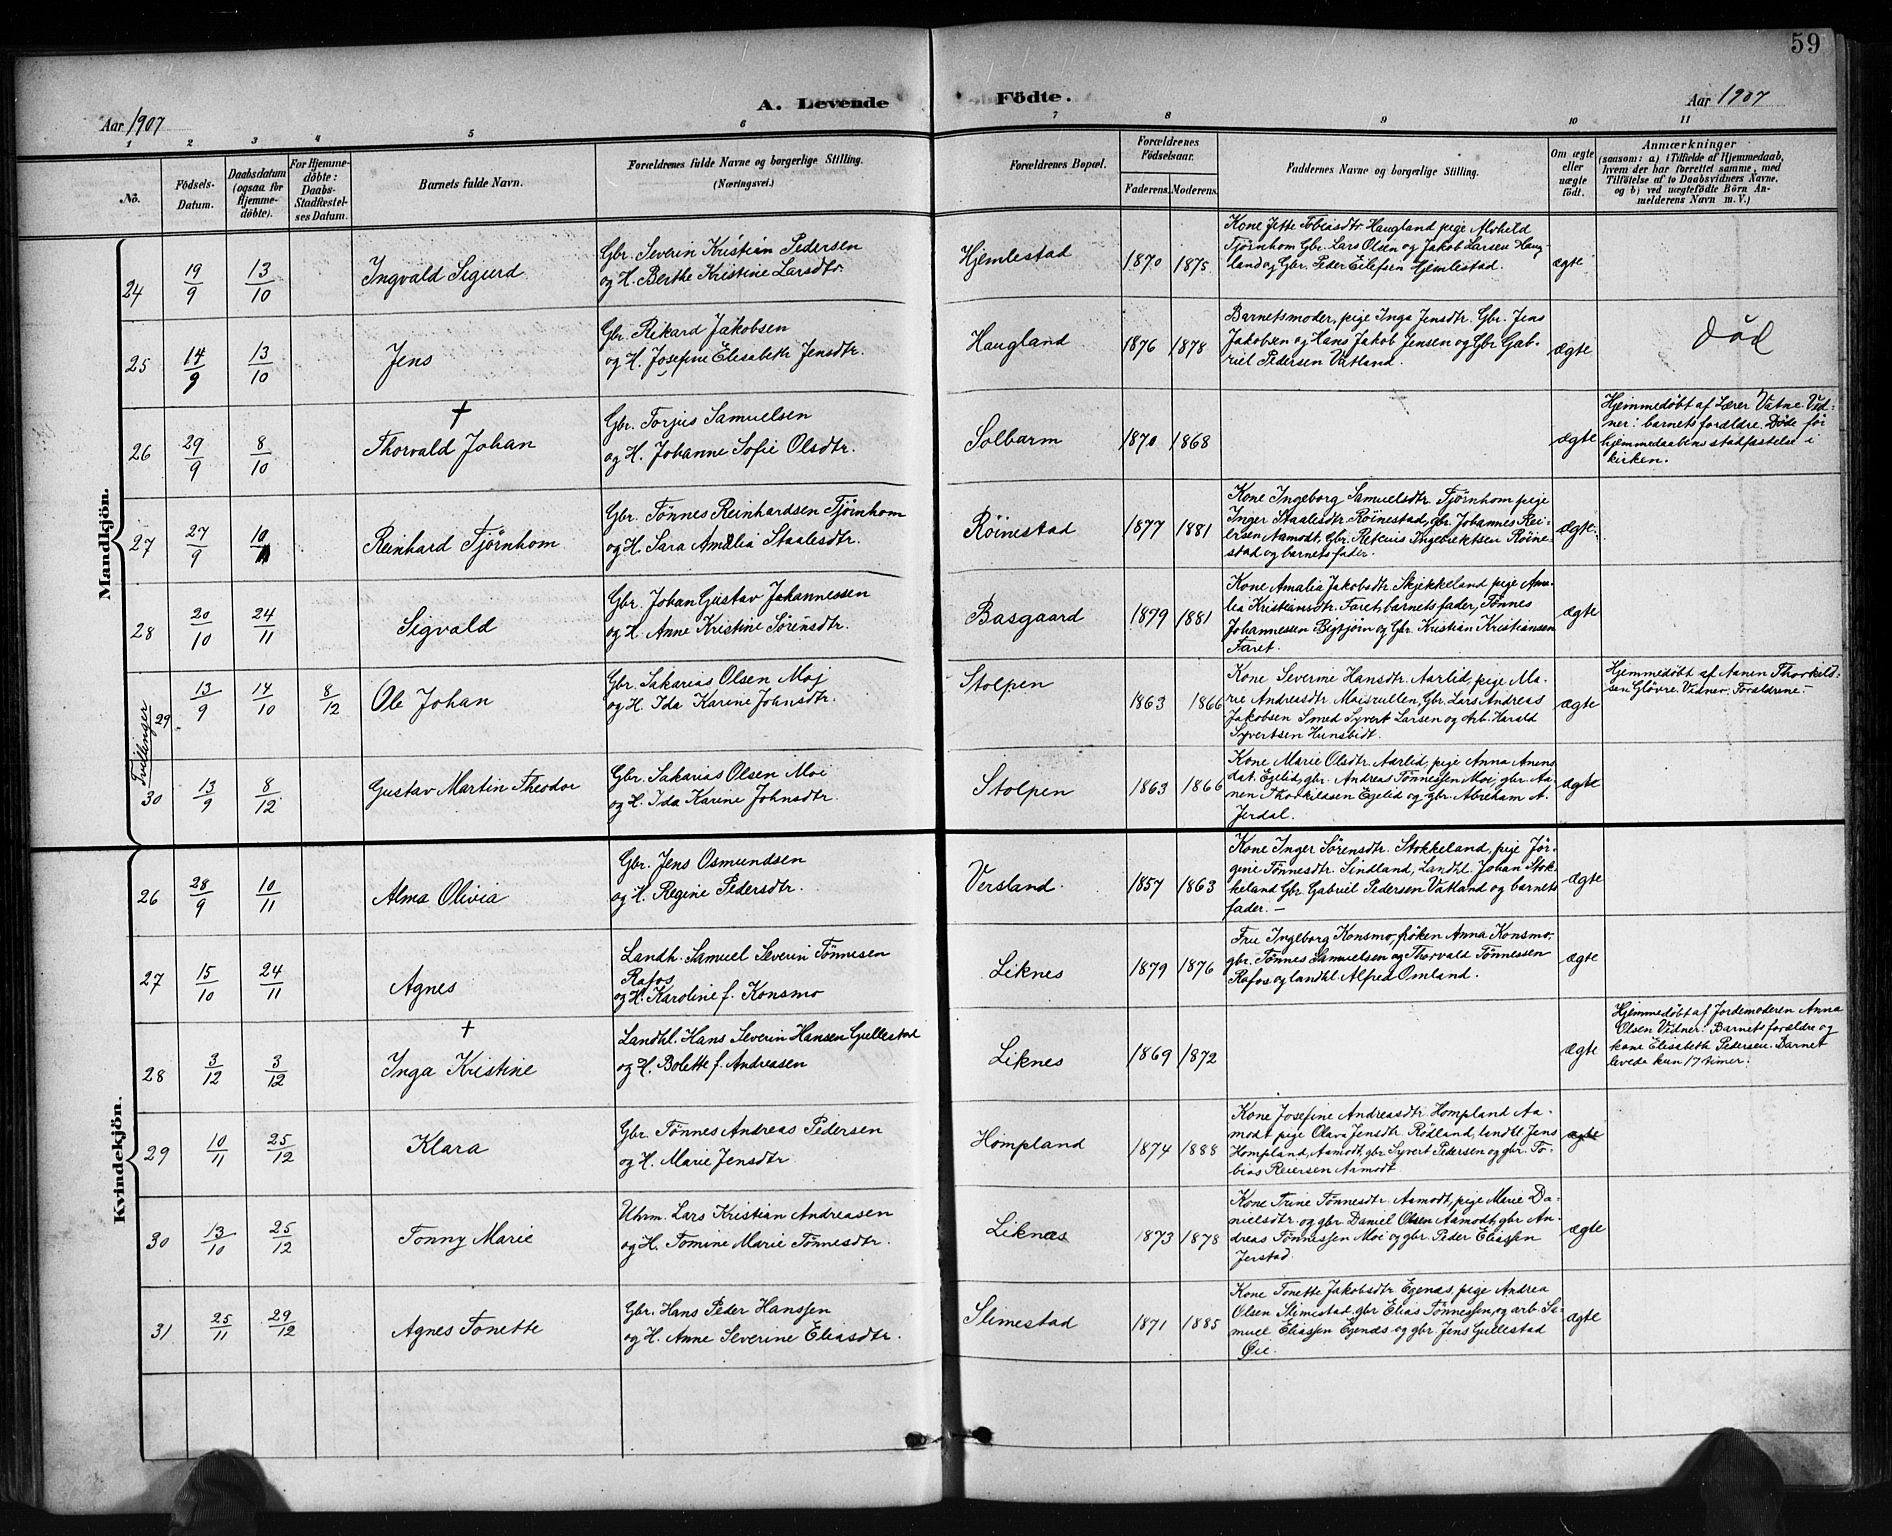 59
A. Levende Födte.
Aar 1907
Aar 1907
1 2 3 4 5 6 7 8 9 10 11
No.
Födsels-
Datum.
Daabsdatum
(ogsaa for
Hjemme-
döbte).
For Hjemme-
döbte:
Daabs-
Stadfæstel-
ses Datum.
Barnets fulde Navn.
Forældrenes fulde Navne og borgerlige Stilling.
(Næringsvei.)
Forældrenes Bopæl.
Forældrenes
Födselsaar.
Faderens. Moderens.
Faddernes Navne og borgerlige Stilling.
Om ægte
eller
uægte
födt.
Anmærkninger
(saasom: a) i Tilfælde af Hjemmedaab,
hvem der har forrettet samme, med
Tilföielse af to Daabsvidners Navne.
og b) ved uægtefödte Börn An-
melderens Navn m. V.)
Mandkjön.
24
19/9
13/10
Ingvald Sigurd
Gbr. Severin Kristian Pedersen
og H. Berthe Kristine Larsdtr.
Hjemlestad
1870 1875
Kone Jette Tobiasdtr. Haugland pige Alvhild
Tjørnhom Gbr. Lars Olsen og Jakob Larsen Haug-
land og Gbr. Peder Eilefsen Hjemlestad.
ægte
25
14/9
13/10
Jens
Gbr. Rikard Jakobsen
og H. Josefine Elisabeth Jensdtr.
Haugland
1876 1878
Barnets moder, pige Inga Jensdtr. Gbr. Jens
Jakobsen og Hans Jakob Jensen og Gbr Gab-
riel Pedersen Vatland.
ægte
død
26
29/9
8/10
†
Thorvald Johan
Gbr. Torjus Samuelsen
og H. Johanne Sofie Olsdtr.
Solbarm
1870 1868
ægte
Hjemmedøbt af Lærer Vatne. Vid-
ner: barnets forældre. Døde før
hjemmedaabens stadfæstelse i
kirken.
27
27/9
10/11
Reinhard Tjørnhom
Gbr. Tönnes Reinhardsen Tjörnhom
og H. Sara Amalia Staalesdtr.
Röinestad
1877 1881
Kone Ingeborg Samuelsdtr. Tjørnhom pige
Inger Staalesdtr. Röinestad, gbr. Johannes Rei-
ersen Aamodt, Gbr. Ingebrektsen Röine-
stad og barnets fader.
ægte.
28
20/10
24/11
Sigvald
Gbr. Johan Gustav Johannessen
og H. Anne Kristine Sörensdtr.
Basgaard
1879 1881
Kone Amalia Jakobsdtr. Skjekkeland pige Ama-
lia Kristiansdtr. Faret, barnets fader, Tönnes
Johannessen Bigtjörn og Gbr. Kristian Kristiansen
Faret.
ægte
Tvillinger
29
13/9
14/10
8/12
Ole Johan
Gbr. Sakarias Olsen Moj
og H. Ida Karine Johnsdtr.
Stolpen
1863 1866
Kone Severine Hansdtr. Aarlid, pige Ma-
rie Andreasdtr. Moisrullen, Gbr. Lars Andreas
Jakobsen Smed Syvert Larsen og Arb. Harald
Syvertsen Hunsbidt.
ægte
Hjemmedøbt af Aanen Thorkild-
sen Glövre. Vidner: Foreldrene.-
30
13/9
8/12
Gustav Martin Theodor
Gbr. Sakarias Olsen Moi
og H. Ida Karine Johnsdtr.
Stolpen
1863 1866
Kone Marie Olsdtr. Aarlid, pige Anna Anens
dat. Egelid, gbr. Andreas Tönnessen Moi, gbr Aa-
nen Thorkildsen Egelid og gbr. Abreham A.
Jerdal.
ægte
Kvindekjön.
26
28/9
10/11
Alma Olivia
Gbr. Jens Osmundsen
og H. Regine Pedersdtr.
Versland.
1857 1863
Kone Inger Sörensdtr. Stokkeland, pige Jör-
gine Tönnesdtr. Sindland, Landhl. Johan Stok-
keland Gbr. Gabriel Pedersen Vatland og barnets
fader.-
ægte
27
15/10
24/11
Agnes
Landh. Samuel Severin Tönnesen
Rafos
og H. Karoline f. Konsmo
Liknes
1879 1876
Fru Ingeborg Konsmo, fröken Anna Konsmo,
gbr. Tönnes Samuelsen og Thorvald Tönnessen
Rafos og landhl Alfred Omland.
ægte
28
3/12
3/12
†
Inga Kristine
Landhl. Hans Severin Hansen Gullestad
og H. Bolette f. Andreasen
Liknes
1869 1872
ægte
Hjemmedøbt af Jordemoderen Anna
Olsen Vidner: Barnets forældre og
kone Elisabeth Pedersen. Barnet
levede kun 17 timer.
29
10/11
25/12
Klara
Gbr. Tönnes Andreas Pedersen
og H. Marie Jensdtr.
Hompland
1874 1888
Kone Josefine Andreasdtr. Hompland Aa-
modt pige Olava Jensdtr. Rödland, landtl. Jens
Hompland, Aamodt, gbr. Syvert Pedersen og gbr. To-
bias Reiersen Aamodt.
ægte
30
13/10
25/12
Tonny Marie
Uhrm. Lars Kristian Andreasen
og H. Tomine Marie Tönnesdtr.
Liknæs
1873 1878
Kone Trine Tönnesdtr. Aamodt, pige Marie Da-
nielsdtr. og gbr. Daniel Olsen Aamodt, gbr. An-
dreas Tönnessen Moi og gbr. Peder Eliassen
Jerstad.
ægte
31
25/11
29/12
Agnes Tonette
Gbr. Hans Peder Hanssen
og H. Anne Severine Eliasdtr.
Slimestad
1871 1885
Kone Tonette Jakobsdtr. Egenæs, pige Andrea
Olsen Slimestad, gbr Elias Tönnessen, og arb. Sa-
muel Eliassen Egenæs og gbr. Jens Gullestad
Øie.
ægte